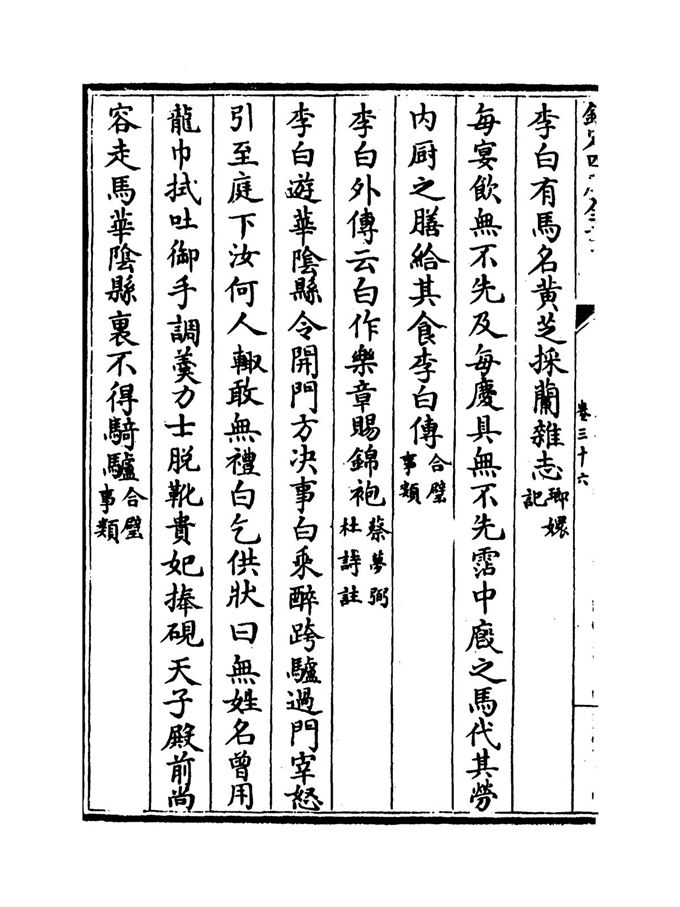 卷三十六
李白有馬名黃芝採蘭雜志瑯嬛記
每宴飲無不先及每慶具無不先霑中廐之馬代其勞
内厨之膳給其食李白傳合璧事類
李白外傳云白作樂章賜錦袍蔡夢弼杜詩註
李白遊華陰縣令開門方決事白乘醉跨驢過門宰怒
引至庭下汝何人輙敢無禮白乞供狀曰無姓名曾用
龍巾拭吐御手調羮力士脱靴貴妃捧硯天子殿前尚
容走馬華陰縣裏不得騎驢合璧事類